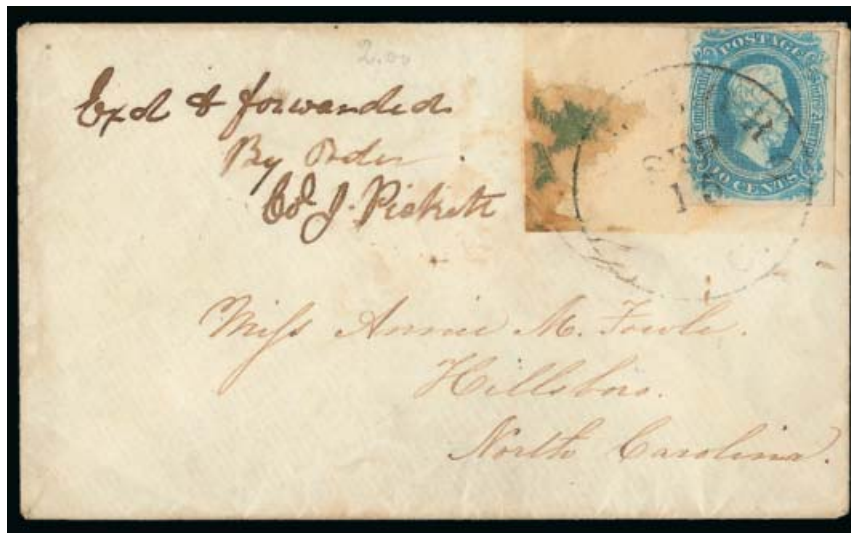 2.00
Exd & forwarded
By Order
Col J. Pickett
POSTAGE
SEP
15
10 CENTS
Miss Annie M. Fowle.
Hillsboro.
North Carolina.